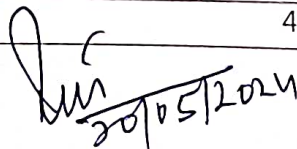 4
20/05/2024